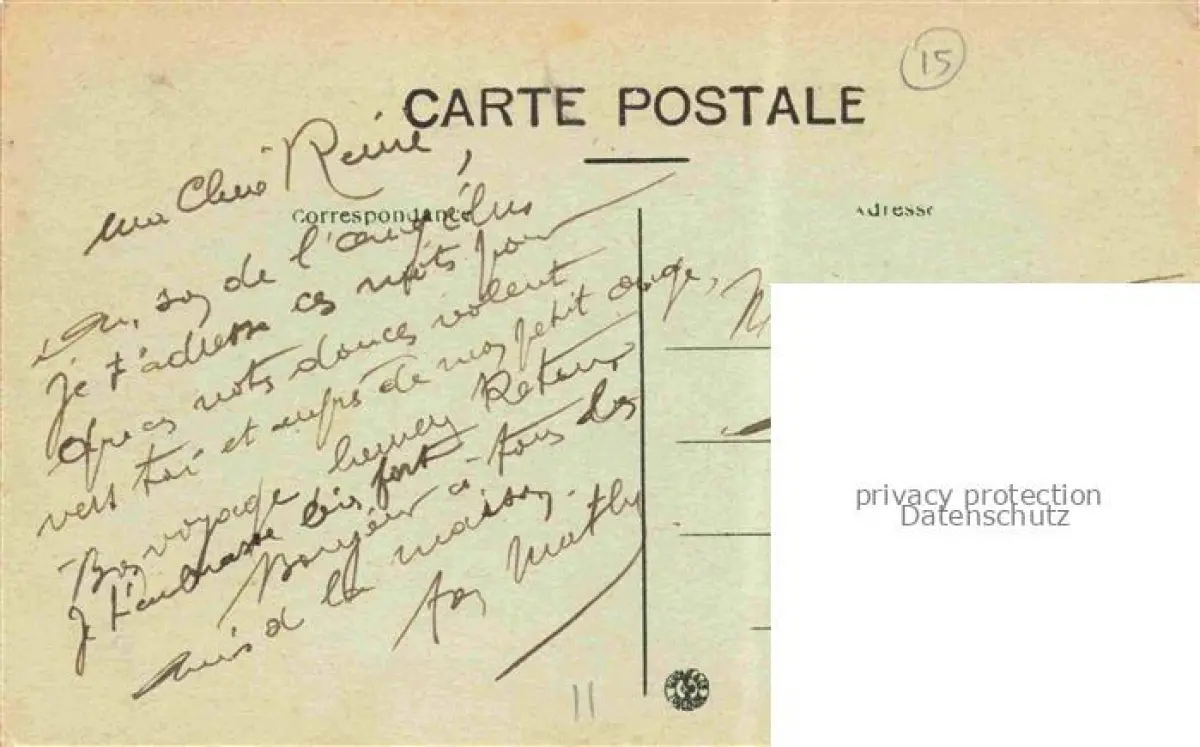 15
CARTE POSTALE
Correspondance
Adresse
ma Chère Reine,
Au son de l'angélus
Je t'adresse ces mots pour
que ces mots doucés volent
vers toi et auprs de mon petit ange,
Bon voyage heureux Retour
Je t'embrasse bis fort
Bonjour à tous les
amis d la maison.
ton Mathy
11
privacy protection
Datenschutz